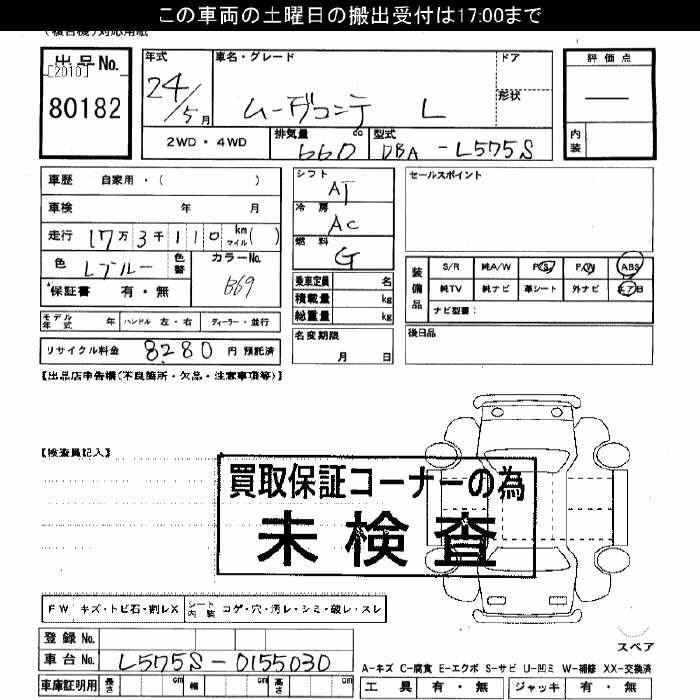 この車両の土曜日の搬出受付は17:00まで
(複合機)対応用紙
出品No.
[2010]
80182
年式
24/5月
車名・グレード
ムーヴコンテ L
ドア
形状
評価点
内装
2WD・4WD
排気量 cc
660
型式
DBA-L575S
車歴 自家用・( )
車検 年 月
走行 17万3千110 km マイル( )
色 Lブルー
色替
カラーNo.
B69
保証書 有・無
シフト
AT
冷房
AC
燃料
G
乗車定員 名
積載量 kg
総重量 kg
セールスポイント
装備品
S/R 純A/W P/S P/W ABS
純TV 純ナビ 革シート 外ナビ エアB
ナビ型番:
モデル年式 年 ハンドル 左・右 ディーラー・並行
名変期限
月 日
後日品
リサイクル料金 8280 円 預託済
【出品店申告欄(不良箇所・欠品・注意事項等)】
【検査員記入】
買取保証コーナーの為
未検査
FW キズ・トビ石・割レX
シート内装 コゲ・穴・汚レ・シミ・破レ・スレ
登録No.
車台No. L575S-0155030
スペア
A-キズ C-腐食 E-エクボ S-サビ U-凹ミ W-補修 XX-交換済
車庫証明用 長さ cm 幅 cm 高さ cm
工具 有・無 ジャッキ 有・無